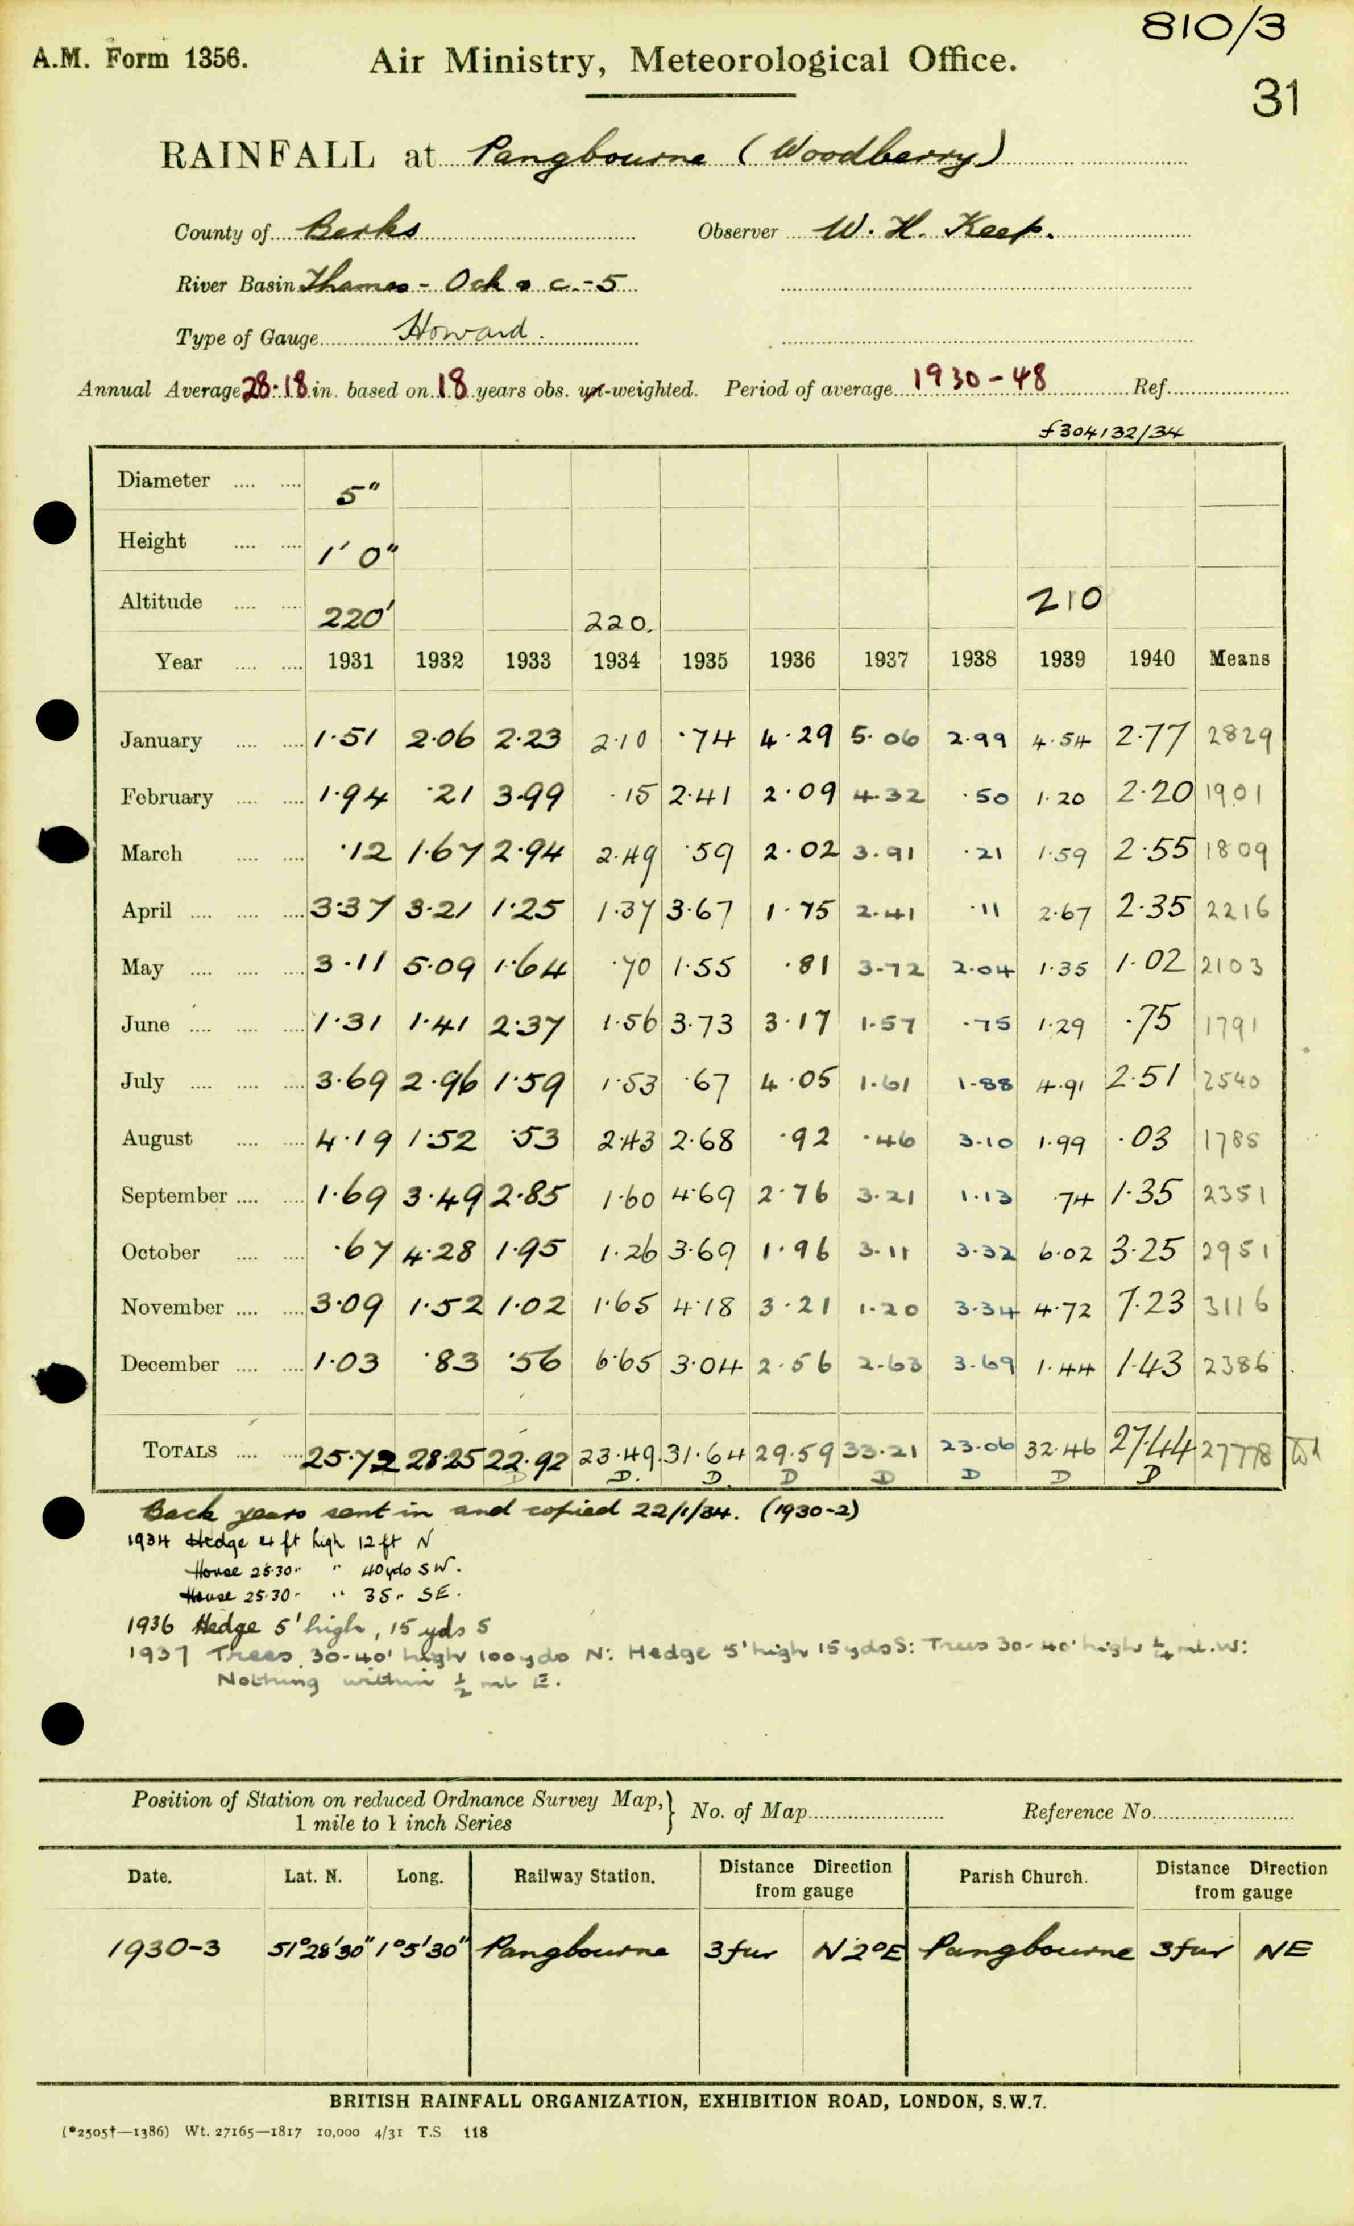 810/3
A.M. Form 1356. Air Ministry, Meteorological Office.
31
RAINFALL at Pangbourne (Woodberry)
County of Berks Observer W. H. Keep.
River Basin Thames - Ock & c. - 5
Type of Gauge Howard.
Annual Average 28.18 in. based on 18 years obs. un-weighted. Period of average 1930-48 Ref.
f304132/34
Diameter .... .... 5"
Height .... .... 1' 0"
Altitude .... .... 220' 220. 210
Year .... .... 1931 1932 1933 1934 1935 1936 1937 1938 1939 1940 Means
January .... .... 1.51 2.06 2.23 2.10 .74 4.29 5.06 2.99 4.54 2.77 2829
February .... .... 1.94 .21 3.99 .15 2.41 2.09 4.32 .50 1.20 2.20 1901
March .... .... .12 1.67 2.94 2.49 .59 2.02 3.91 .21 1.59 2.55 1809
April .... .... .... 3.37 3.21 1.25 1.37 3.67 1.75 2.41 .11 2.67 2.35 2216
May .... .... .... 3.11 5.09 1.64 .70 1.55 .81 3.72 2.04 1.35 1.02 2103
June .... .... .... 1.31 1.41 2.37 1.56 3.73 3.17 1.57 .75 1.29 .75 1791
July .... .... .... 3.69 2.96 1.59 1.53 .67 4.05 1.61 1.88 4.91 2.51 2540
August .... .... 4.19 1.52 .53 2.43 2.68 .92 .46 3.10 1.99 .03 1785
September .... .... 1.69 3.49 2.85 1.60 4.69 2.76 3.21 1.13 .74 1.35 2351
October .... .... .67 4.28 1.95 1.26 3.69 1.96 3.11 3.32 6.02 3.25 2951
November .... .... 3.09 1.52 1.02 1.65 4.18 3.21 1.20 3.34 4.72 7.23 3116
December .... .... 1.03 .83 .56 6.65 3.04 2.56 2.63 3.69 1.44 1.43 2386
TOTALS .... .... 25.72 28.25 22.92 23.49 31.64 29.59 33.21 23.06 32.46 27.44 27778
D D. D. D D D D D
Back years sent in and copied 22/1/34. (1930-2)
1934 Hedge 4 ft high 12 ft N
House 25.30. " 40 yds SW.
House 25.30 - " 35 " SE.
1936 Hedge 5' high, 15 yds S
1937 Trees 30-40' high 100 yds N: Hedge 5' high 15 yds S: Trees 30-40' high ¼ ml. W:
Nothing within ½ ml E.
Position of Station on reduced Ordnance Survey Map, } No. of Map Reference No.
1 mile to 1 inch Series
Date. Lat. N. Long. Railway Station. Distance Direction from gauge Parish Church. Distance Direction from gauge
1930-3 51°28'30" 1°5'30" Pangbourne 3 fur N2°E Pangbourne 3 fur NE
BRITISH RAINFALL ORGANIZATION, EXHIBITION ROAD, LONDON, S.W.7.
(*2505†—1386) Wt. 27165—1817 10,000 4/31 T.S 118